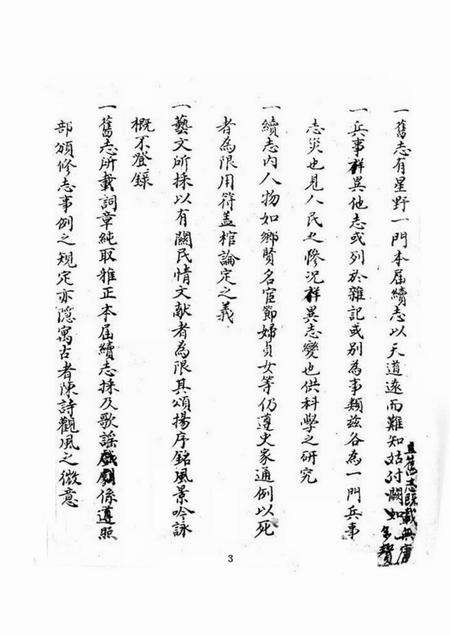 一舊志有星野一門本屆續志以天道遠而難知姑付闕如
且舊志既載無庸
多贅
一兵事祥異他志或列於雜記或別為事類茲各為一門兵事
志災也見人民之慘況祥異志變也供科學之研究
一續志內人物如鄉賢名宦節婦貞女等仍遵史家通例以死
者為限用符盖棺論定之義
一藝文所採以有關民情文獻者為限其頌揚序銘風景吟詠
概不登錄
一舊志所載詞章純取雅正本屆續志採及歌謠戲劇係遵照
部頒修志事例之規定亦隱寓古者陳詩觀風之微意
3